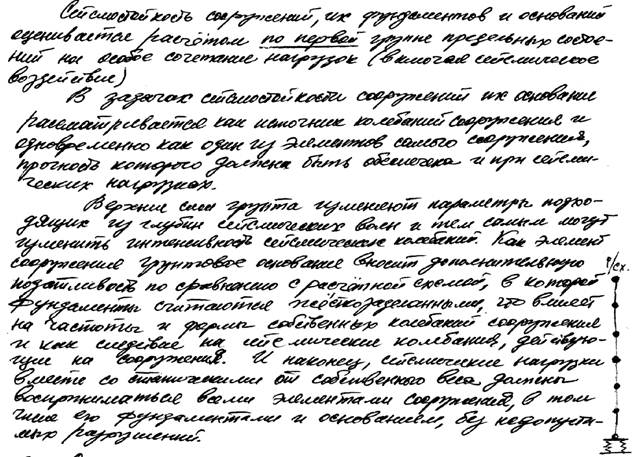 Сейсмостойкость сооружений, их фундаментов и оснований
оценивается расчётом по первой группе предельных состоя-
ний на особое сочетание нагрузок (включая сейсмическое
воздействие)
В задачах сейсмостойкости сооружений их основание
рассматривается как источник колебаний сооружения и
одновременно как один из элементов самого сооружения,
прочность которого должна быть обеспечена и при сейсми-
ческих нагрузках.
Верхние слои грунта изменяют параметры подхо-
дящих из глубин сейсмических волн и тем самым могут
изменить интенсивность сейсмических колебаний. Как элемент
сооружения грунтовое основание вносит дополнительную
податливость по сравнению с расчётной схемой, в которой
фундаменты считаются жёсткозаделанными, что влияет
на частоты и формы собственных колебаний сооружения
и как следствие на сейсмические колебания, действую-
щие на сооружения. И наконец, сейсмические нагрузки
вместе со статическими от собственного веса должны
восприниматься всеми элементами сооружений, в том
числе его фундаментами и основанием, без недопусти-
мых разрушений.
р/сх.